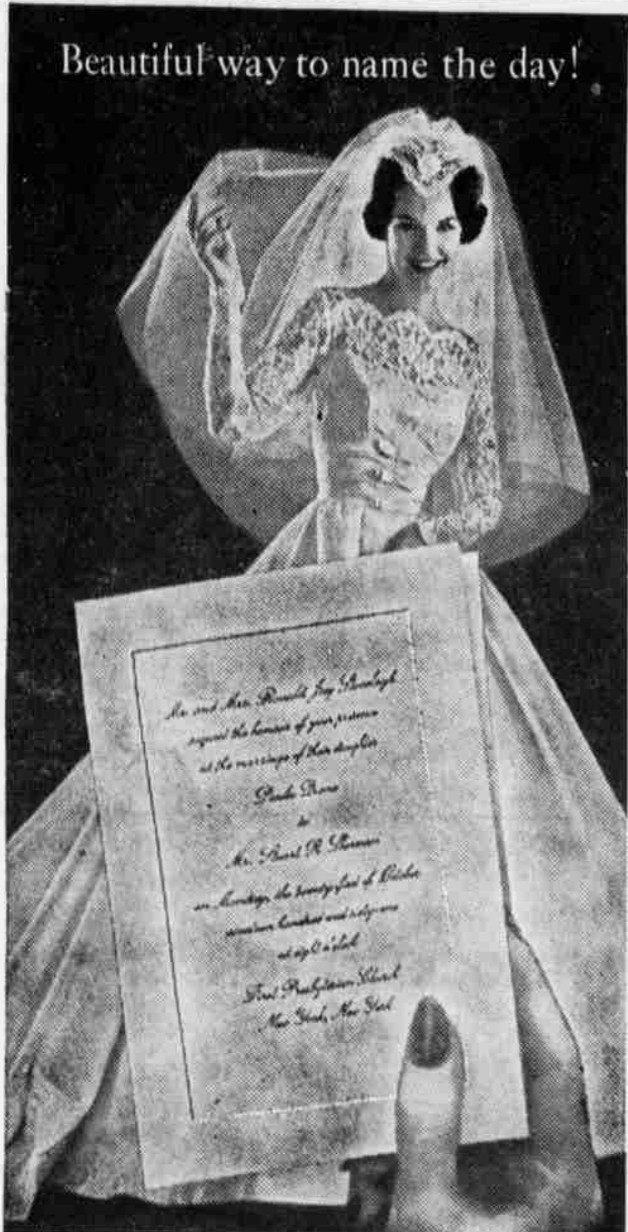 Beautiful way to name the day!
Mr. and Mrs. Ronald Jay
request the honour of your presence
at the marriage of their daughter
to
Mr. R.
on Monday, the twenty-first of October
nineteen hundred and sixty-one
at eight o'clock
First Presbyterian Church
New York, New York